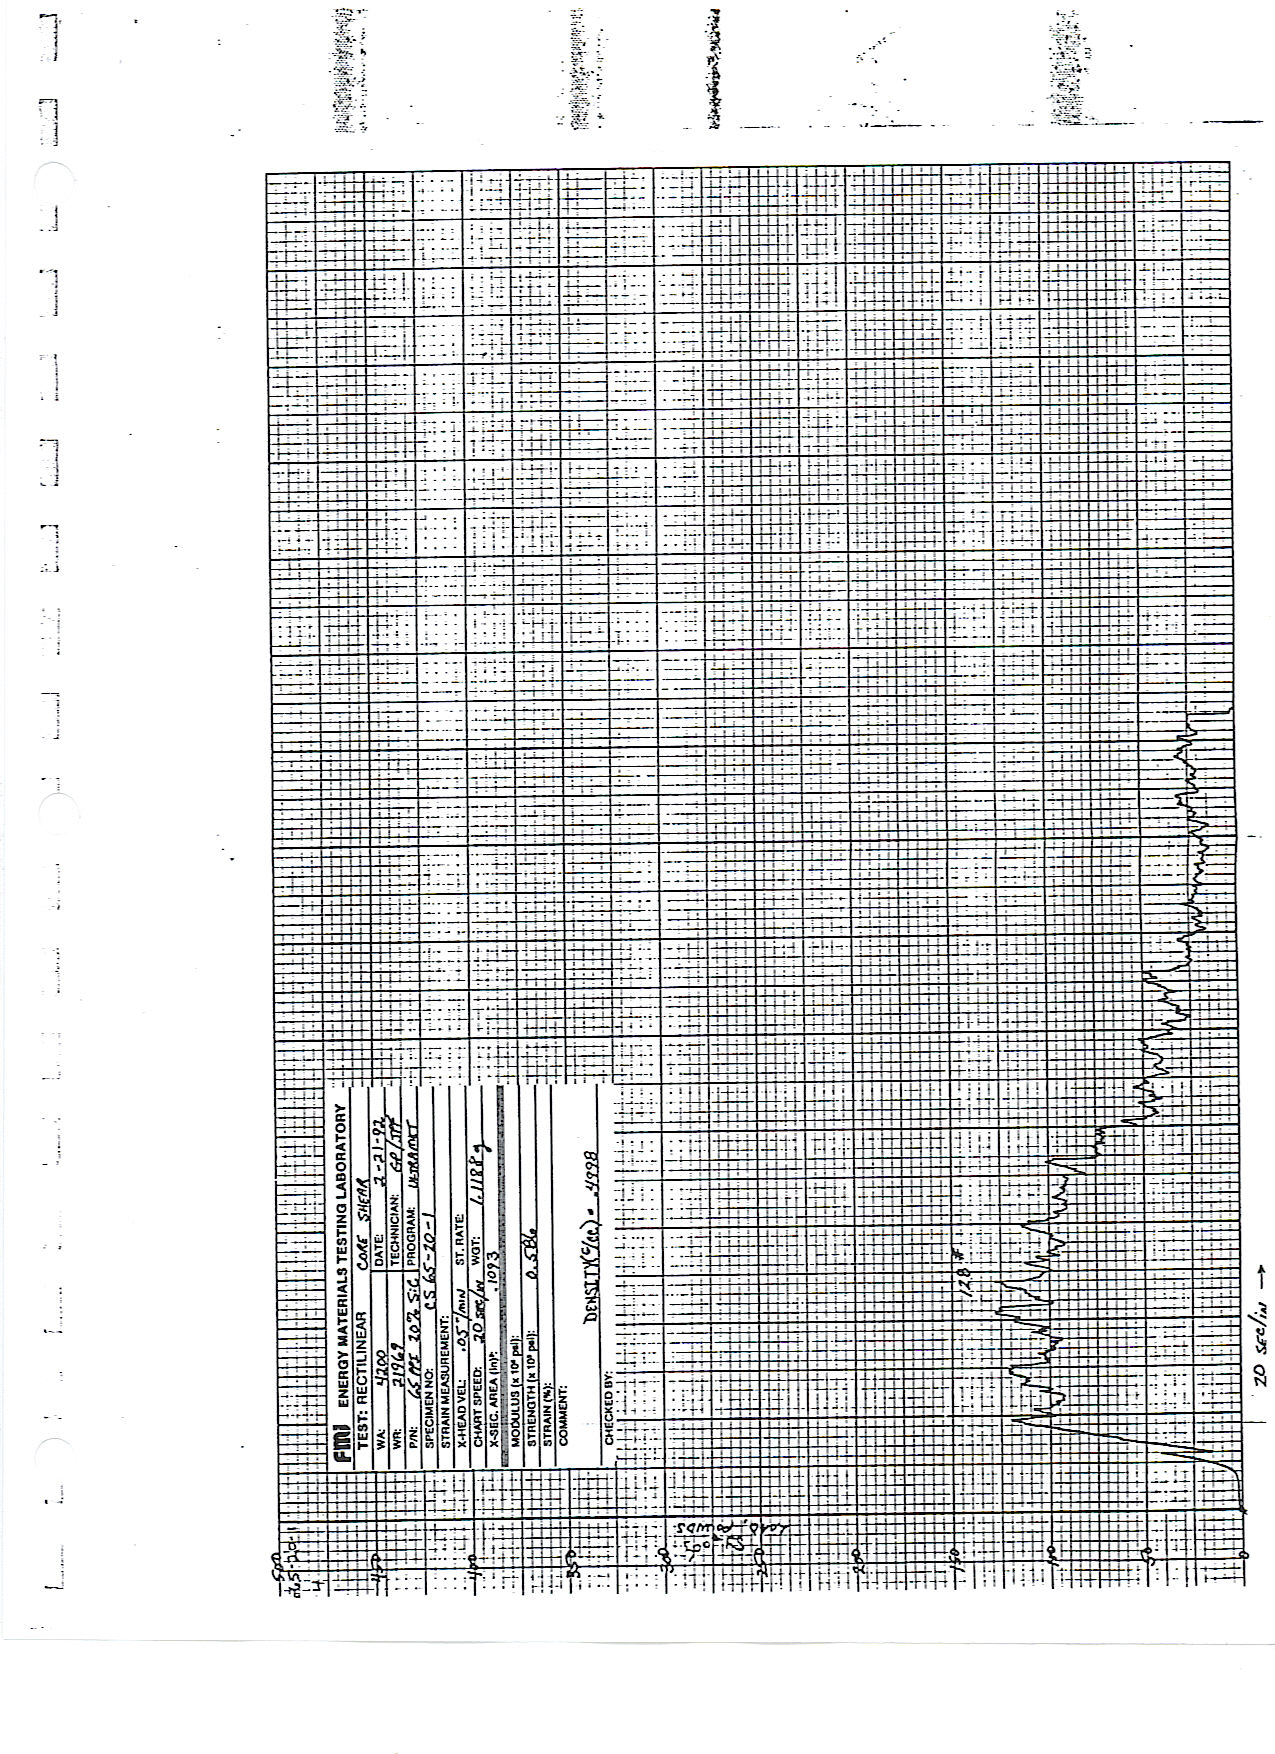 FMI ENERGY MATERIALS TESTING LABORATORY
TEST: RECTILINEAR CORE SHEAR
WA: 4200 DATE: 2-21-92
WR: 21969 TECHNICIAN: GP/JPF
P/N: 65 PPI 20% SiC PROGRAM: ULTRAMET
SPECIMEN NO: CS 65-20-1
STRAIN MEASUREMENT:
X-HEAD VEL: .05"/MIN ST. RATE:
CHART SPEED: 20 sec/IN WGT: 1.1188 g
X-SEC. AREA (in)²: .1093
MODULUS (x 10⁶ psi):
STRENGTH (x 10³ psi): 0.586
STRAIN (%):
COMMENT:
DENSITY(G/CC) = .4998
CHECKED BY:
500
450
400
350
300
250
200
150
100
50
0
LOAD, POUNDS
128 #
20 SEC/IN →